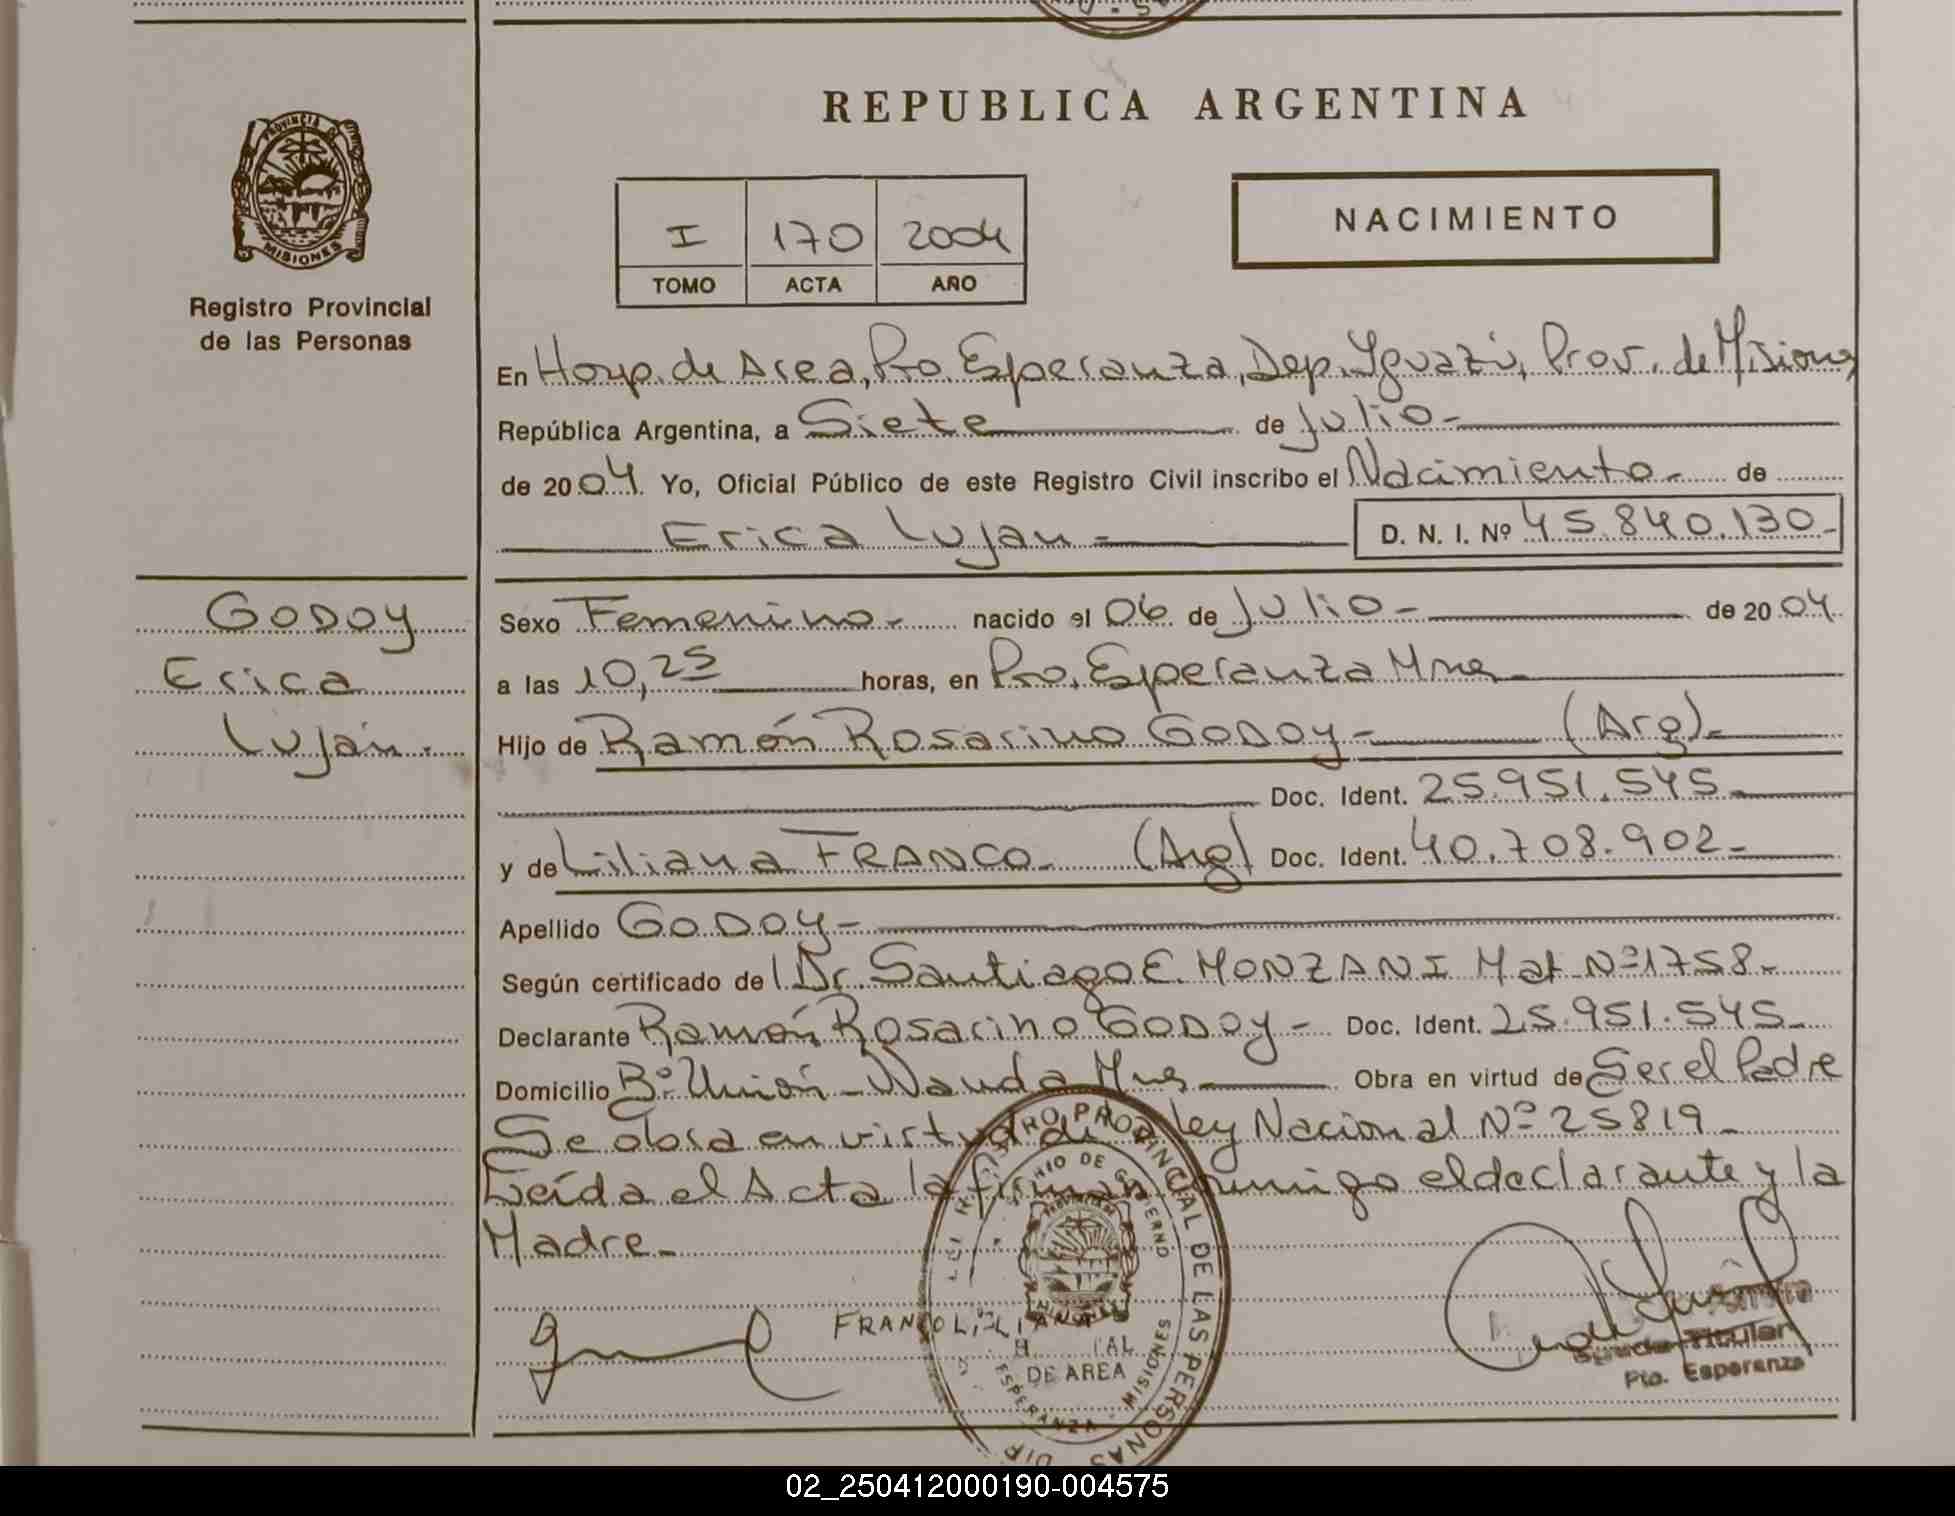 REPUBLICA ARGENTINA
PROVINCIA DE
MISIONES
Registro Provincial
de las Personas
I 170 2004
TOMO ACTA AÑO
NACIMIENTO
En Hosp. de Area, Pto. Esperanza, Dep. Iguazú, Prov. de Misiones,
República Argentina, a Siete de Julio-
de 2004. Yo, Oficial Público de este Registro Civil inscribo el Nacimiento- de
Erica Lujan = D. N. I. Nº 45.840.130-
GODOY
Erica
Luján.
Sexo Femenino- nacido el 06 de Julio- de 2004
a las 10,25 horas, en Pto. Esperanza Mnes
Hijo de Ramón Rosarino GODOY- (Arg)-
Doc. Ident. 25.951.545-
y de Liliana FRANCO- (Arg) Doc. Ident. 40.708.902-
Apellido GODOY-
Según certificado de l Dr. Santiago E. MONZANI Mat Nº 1758-
Declarante Ramón Rosarino GODOY- Doc. Ident. 25.951.545-
Domicilio Bº Unión - Wanda Mnes Obra en virtud de Ser el Padre
Se obra en virtud de Ley Nacional Nº 25819-
Leída el Acta la firman conmigo el declarante y la
Madre-
FRANCO LILIANA
REGISTRO PROVINCIAL DE LAS PERSONAS
DE GOBIERNO
DE AREA
ESPERANZA - MISIONES
Titular
Pto. Esperanza
02_250412000190-004575